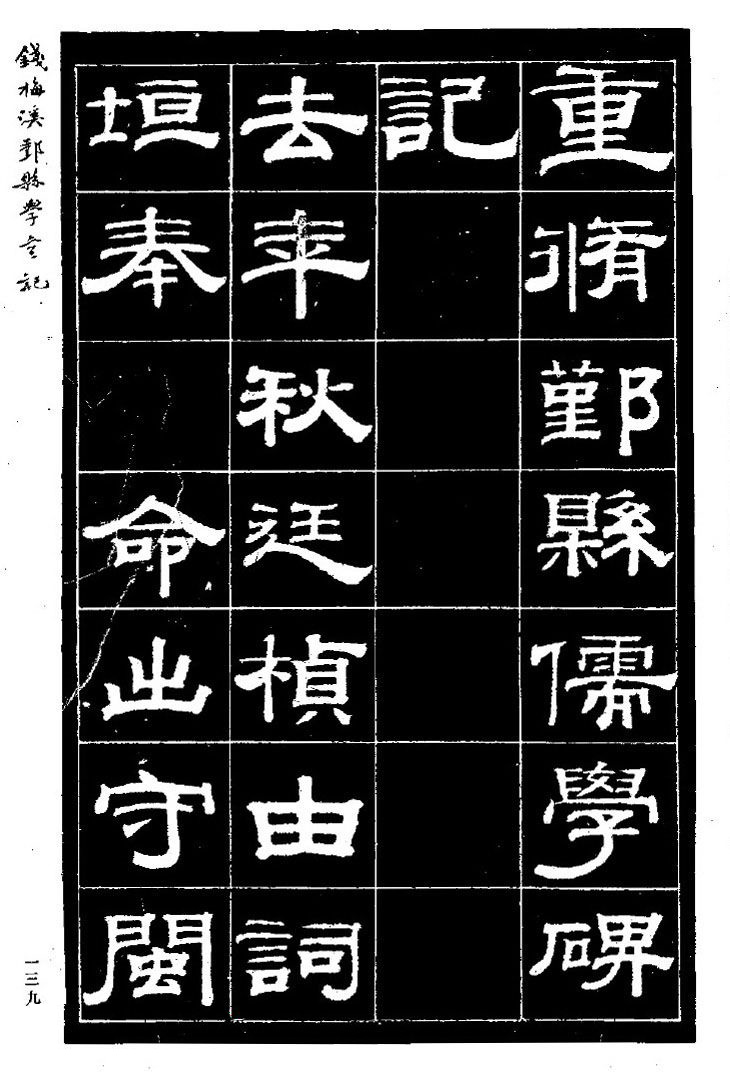 重脩鄞縣儒學碑
記
去年秋廷楨由詞
垣奉命出守閩
錢梅溪鄞縣學宮記
一三九